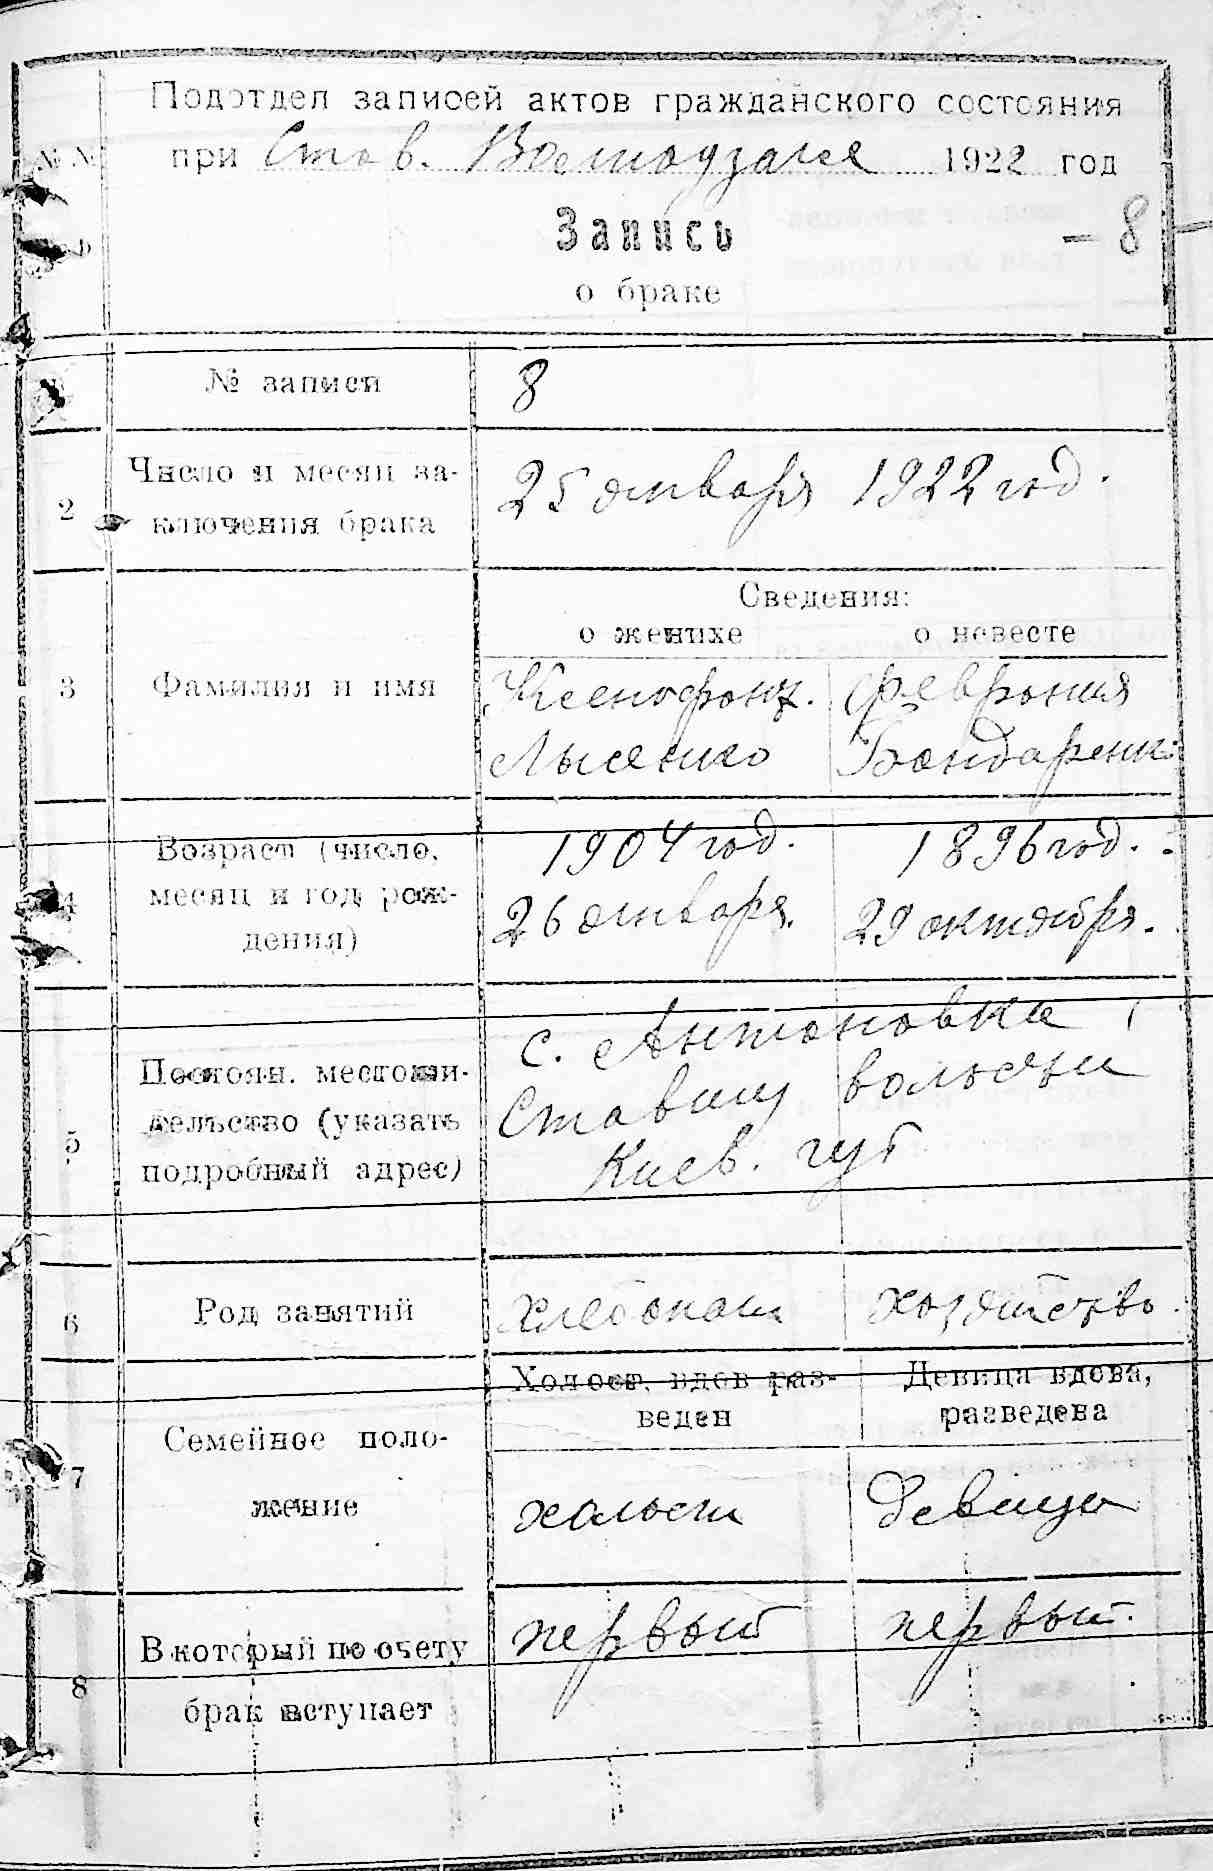 Подотдел записей актов гражданского состояния
№ № при Став. 1922 год
Запись
- 8 -
о браке
№ записи 8
2 Число и месяц за-
ключения брака
25 января 1922 год.
Сведения:
о женихе о невесте
3 Фамилия и имя
Ксенофонт. Феврония
Лысенко Бондаренк
4 Возраст (число,
месяц и год рож-
дения)
1904 год. 1896 год.
26 января. 29 октября.
5 Постоян. местожи-
тельство (указать
подробный адрес)
с. Антоновка
Ставищ волости
Киев. губ
6 Род занятий
Хлебопаш хозяйство.
7 Семейное поло-
жение
Холост, вдов раз-
веден
Девица вдова,
разведена
холост девица
8 В который по счету
брак вступает
первый первый.